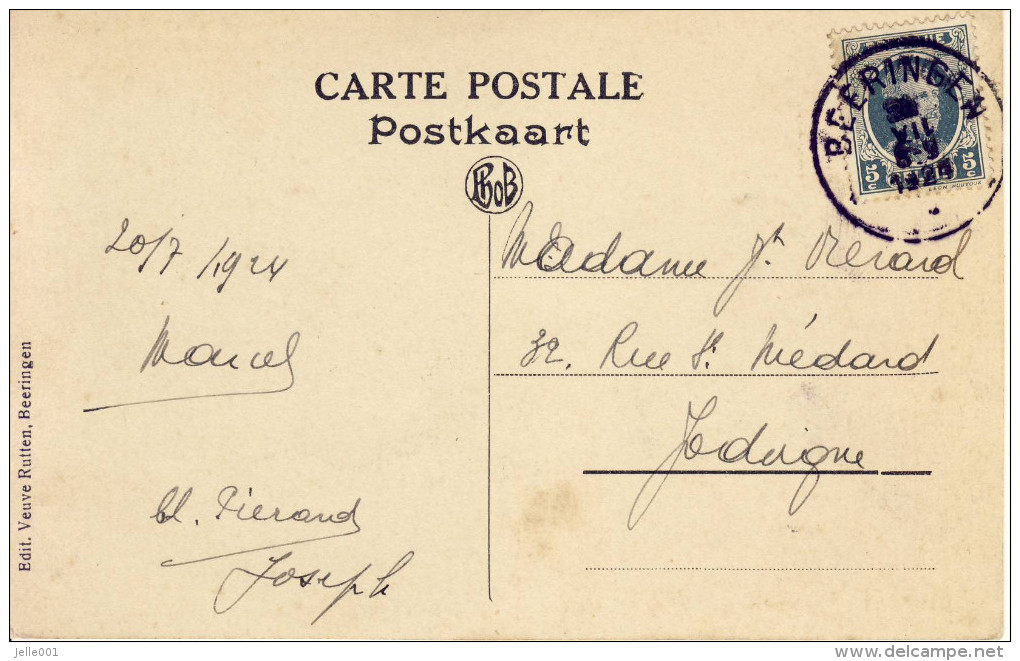 CARTE POSTALE
Postkaart
PhoB
BEERINGEN
VII
1924
5c 5c
20/7/1924
Marcel
Cl. Pierard
Joseph
Madame Jh. Pierard
32, Rue St. Médard
Jodoigne
Edit. Veuve Rutten, Beeringen
jelle001
delcampe.net